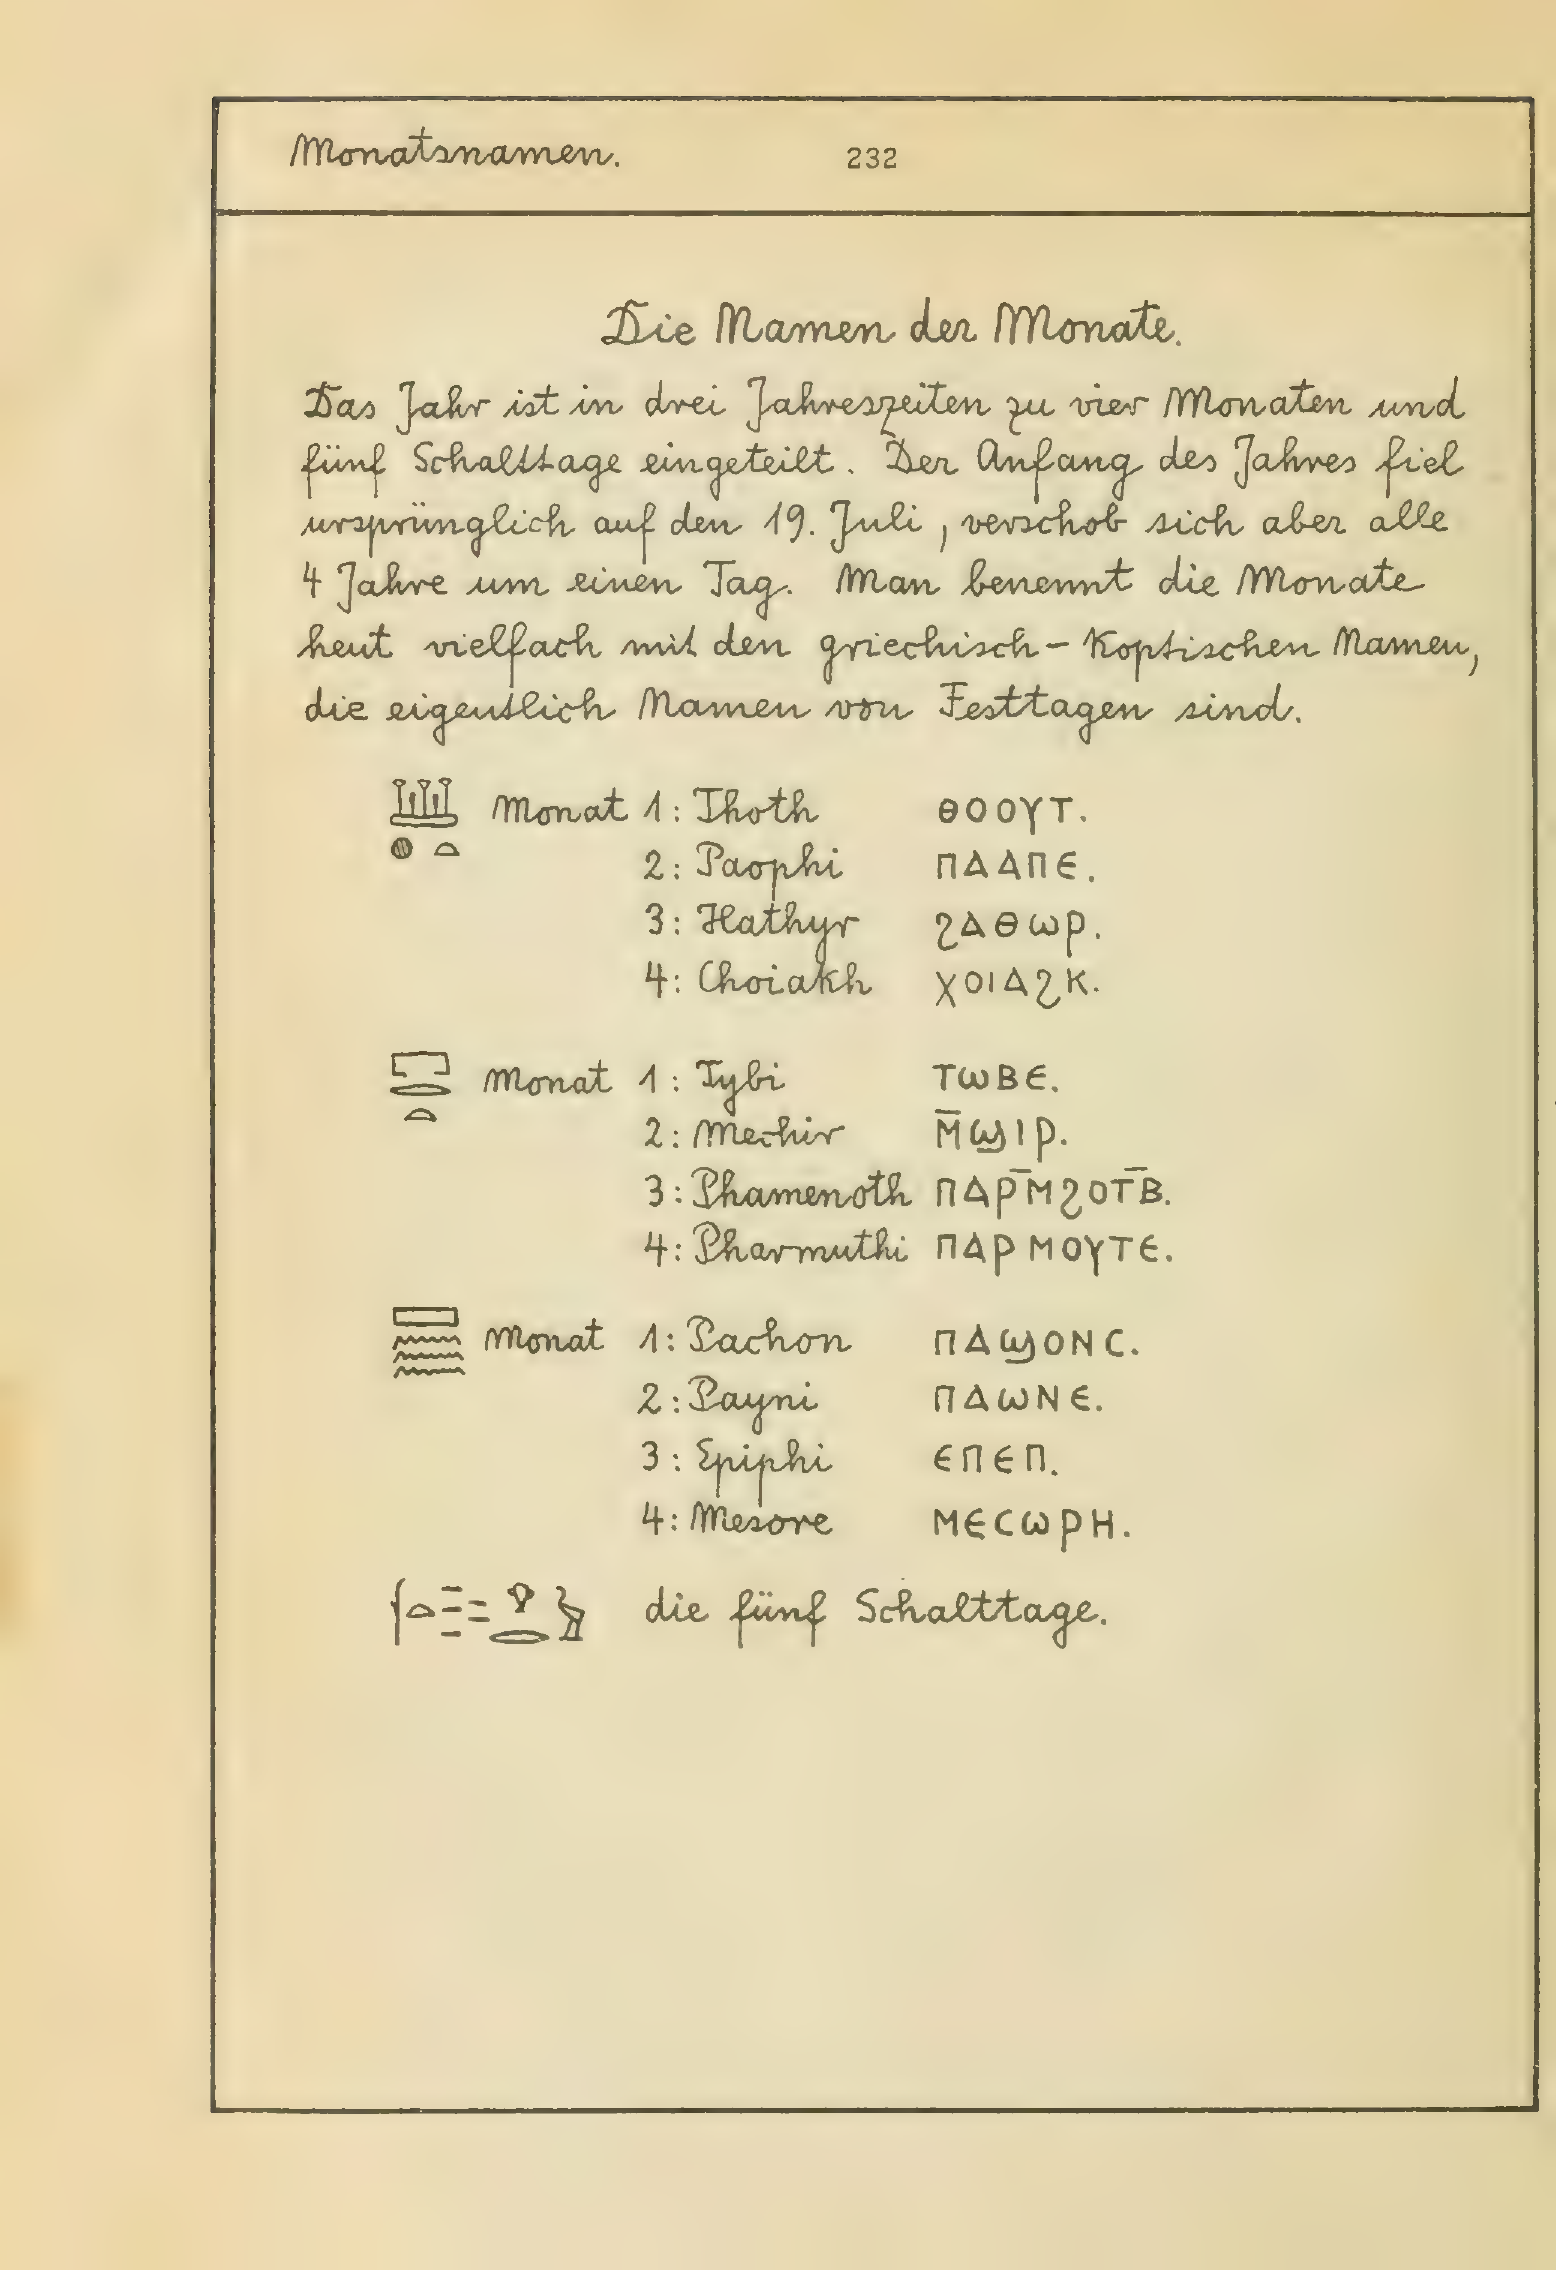 Monatsnamen. 232
Die Namen der Monate.
Das Jahr ist in drei Jahreszeiten zu vier Monaten und
fünf Schalttage eingeteilt. Der Anfang des Jahres fiel
ursprünglich auf den 19. Juli, verschob sich aber alle
4 Jahre um einen Tag. Man benennt die Monate
heut vielfach mit den griechisch-koptischen Namen,
die eigentlich Namen von Festtagen sind.
Monat 1: Thoth ⲑⲟⲟⲩⲧ.
2: Paophi ⲡⲁⲁⲡⲉ.
3: Hathyr ϩⲁⲑⲱⲣ.
4: Choiakh ⲭⲟⲓⲁϩⲕ.
Monat 1: Tybi ⲧⲱⲃⲉ.
2: Mechir ⲙ̄ϣⲓⲣ.
3: Phamenoth ⲡⲁⲣⲙ̄ϩⲟⲧⲃ̄.
4: Pharmuthi ⲡⲁⲣⲙⲟⲩⲧⲉ.
Monat 1: Pachon ⲡⲁϣⲟⲛⲥ.
2: Payni ⲡⲁⲱⲛⲉ.
3: Epiphi ⲉⲡⲉⲡ.
4: Mesore ⲙⲉⲥⲱⲣⲏ.
die fünf Schalttage.